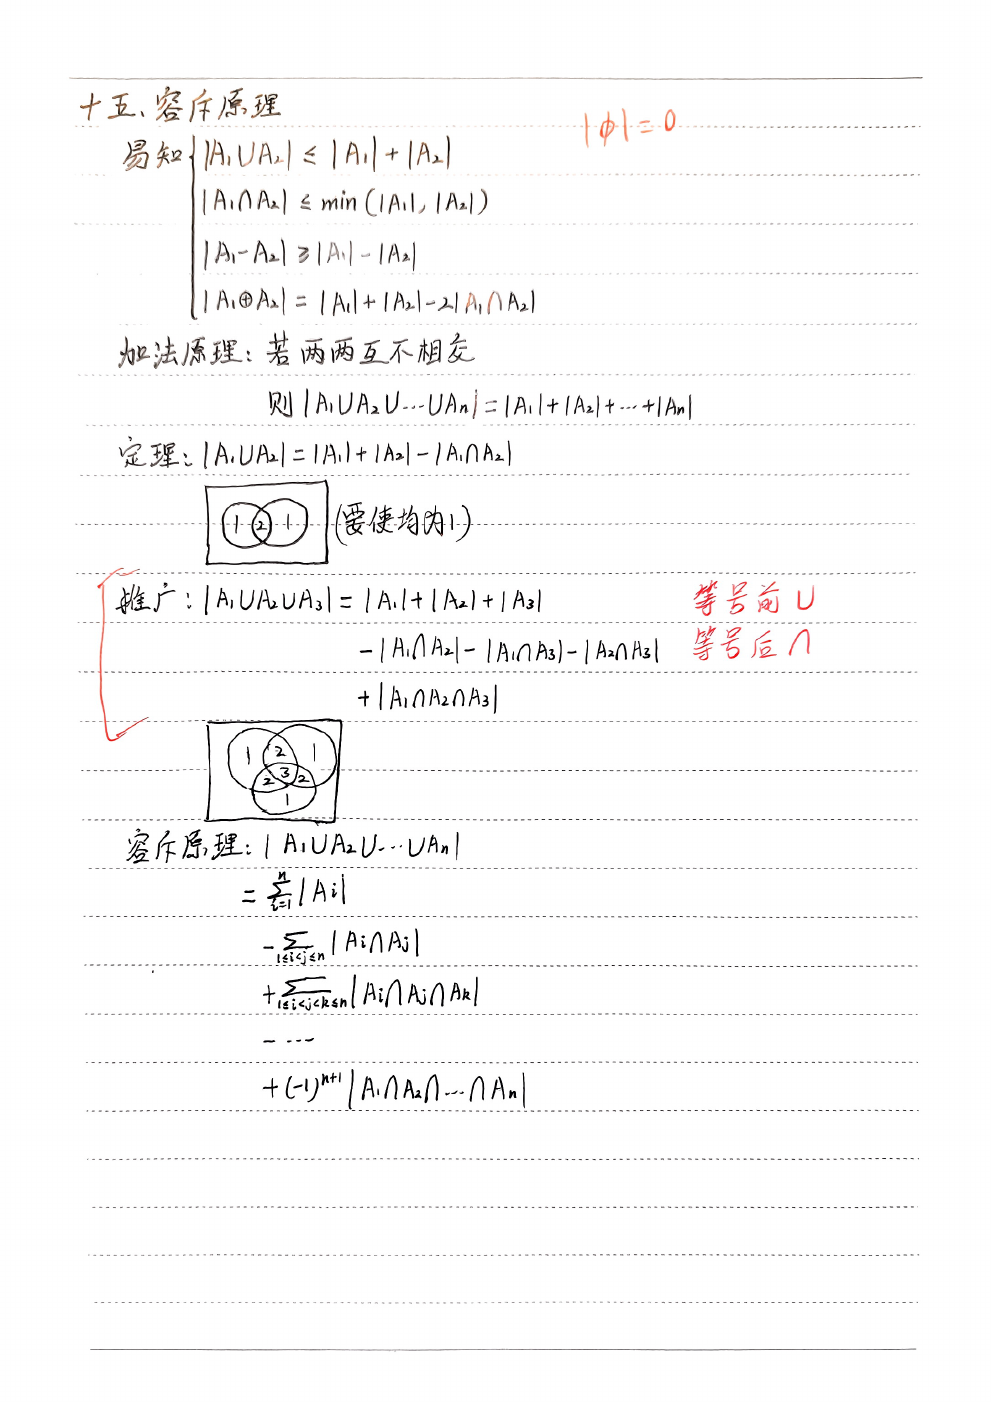 十五、容斥原理
|ϕ| = 0
易知 { |A₁∪A₂| ≤ |A₁| + |A₂|
|A₁∩A₂| ≤ min (|A₁|, |A₂|)
|A₁-A₂| ≥ |A₁| - |A₂|
|A₁⊕A₂| = |A₁| + |A₂| - 2|A₁∩A₂|
加法原理: 若两两互不相交
则 |A₁∪A₂∪…∪Aₙ| = |A₁| + |A₂| + … + |Aₙ|
定理: |A₁∪A₂| = |A₁| + |A₂| - |A₁∩A₂|
1 2 1 (要使均为1)
推广: |A₁∪A₂∪A₃| = |A₁| + |A₂| + |A₃| 等号前∪
- |A₁∩A₂| - |A₁∩A₃| - |A₂∩A₃| 等号后∩
+ |A₁∩A₂∩A₃|
1 2 1
2 3 2
1
容斥原理: |A₁∪A₂∪…∪Aₙ|
= ∑ⁿᵢ₌₁ |Ai|
- ∑1≤i<j≤n |Ai∩Aj|
+ ∑1≤i<j<k≤n |Ai∩Aj∩Ak|
- …
+ (-1)ⁿ⁺¹ |A₁∩A₂∩…∩Aₙ|